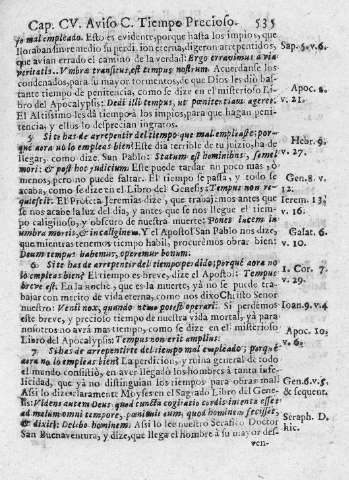 Cap. CV. Aviso C. Tiempo Precioso. 535
yo mal empleado. Esto es evidente, porque hasta los impios, que
lloraban sin remedio su perdicion eterna, digeron arrepentidos,
que avian errado el camino de la verdad: Ergo erravimus à via
veritatis. Vmbra transitus, est tempus nostrum. Acuerdanse los
condenados, para su mayor tormento, de que Dios les diò bas-
tante tiempo de penitencia, como se dize en el misterioso Li-
bro del Apocalypsis: Dedi illi tempus, ut pœnitentiam ageret.
El Altissimo les dà tiempo à los impios, para que hagan peni-
tencia, y ellos lo desprecian ingratos.
5 Si te has de arrepentir del tiempo que mal empleaste: por-
què aora no lo empleas bien? Este dia terrible de tu juizio, ha de
llegar, como dize San Pablo: Statutum est hominibus, semel
mori: & post hoc judicium. Este puede tardar no poco mas, ò
menos, pero no puede faltar. El tiempo se passa, y todo se
acaba, como se dize en el Libro del Genesis: Tempus non re-
quiescit. El Profeta Jeremias dize, que trabajemos antes que
se nos acabe la luz del dia, y antes que se nos llegue el tiem-
po caliginoso, y obscuro de nuestra muerte: Ponet lucem in
umbra mortis, & in caliginem. Y el Apostol San Pablo nos dize,
que mientras tenemos tiempo habil, procurèmos obrar bien:
Dum tempus habemus, operemur bonum.
6 Si te has de arrepentir del tiempo perdido; porquè aora no
lo empleas bien? El tiempo es breve, dize el Apostol: Tempus
breve est. En la noche, que es la muerte, ya no se puede tra-
bajar con merito de vida eterna, como nos dixo Christo Señor
nuestro: Venit nox, quando nemo potest operari. Si perdemos
este breve, y precioso tiempo de nuestra vida mortal, yà para
nosotros no avrà mas tiempo, como se dize en el misterioso
Libro del Apocalypsis: Tempus non erit amplius.
7 Si has de arrepentirte del tiempo mal empleado; porquè
aora no lo empleas bien? La perdicion, y ruina general de todo
el mundo consistiò, en aver llegado los hombres à tanta infe-
licidad, que yà no distinguian los tiempos para obrar mal.
Assi lo dize claramente Moyses en el Sagrado Libro del Gene-
sis: Videns autem Deus quod cuncta cogitatio cordis intenta esset
ad malum omni tempore, pœnituit eum, quod hominem fecisset,
& dixit: Delebo hominem. Assi lo lee nuestro Serafico Doctor
San Buenaventura, y dize, que llega el hombre à su mayor des-
ven-
Sap. 5. v. 6.
Apoc. 2.
v. 21.
Hebr. 9.
v. 27.
Gen. 8. v.
12.
Ierem. 13.
v. 16.
Galat. 6.
v. 10.
1. Cor. 7.
v. 29.
Ioan. 9. v. 4
Apoc. 10,
v. 6.
Gen. 6. v. 5.
& sequent.
Seraph. D.
hic.